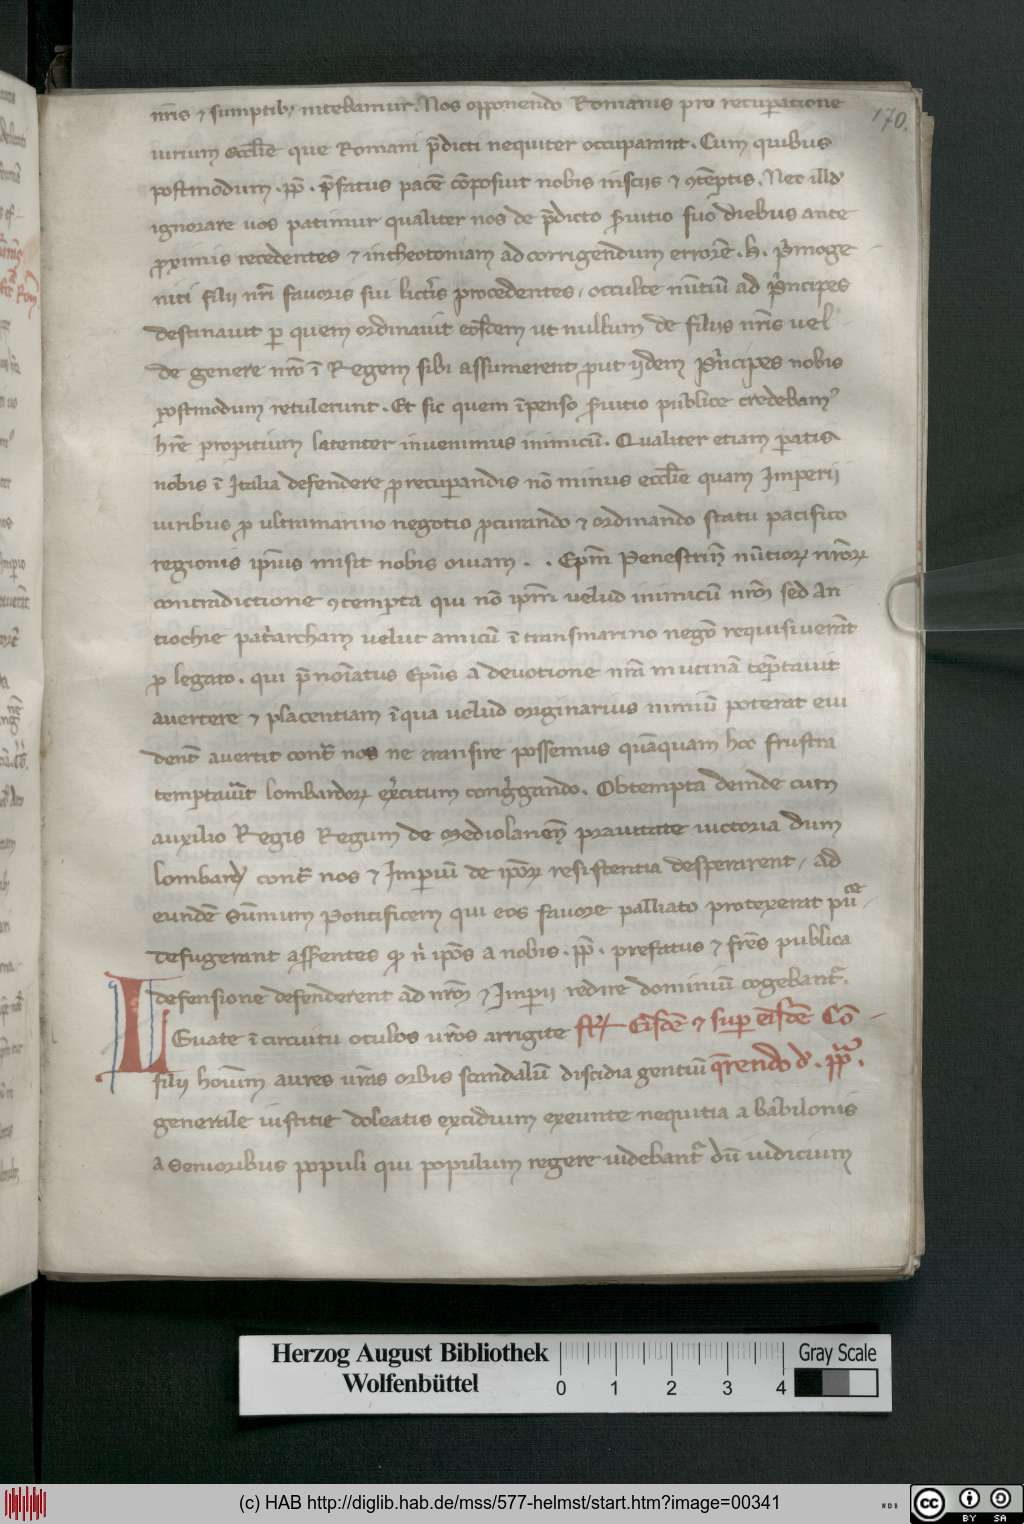 170.
nr̄is ⁊ sumptibꝫ nitebamur. Nos opponendo Romanis pro recuꝑatione
iurium eccl̄ie que Romani p̄dicti nequiter occuparant. Cum quibus
postmodum. pp̄. p̄fatus pacē cōposuit nobis insciis ⁊ ꝯtēptis. Nec illd'
ignorare uos patimur qualiter nos de p̄dicto seruitio suo diebus ante
ꝓximis recedentes ⁊ in theotoniam ad corrigendum errorē. h. p̄moge
niti filii nr̄i fauoris sui lict̄is procedentes, occulte nūtiū ad p̄ncipes
destinauit ꝑ quem ordinauit eosdem ut nullum de filiis nr̄is uel
de genere nr̄o ī Regem sibi assumerent ꝓut ijdem p̄ncipes nobis
postmodum retulerunt. Et sic quem īpenso seruitio publice credebamꝰ
hr̄e propitium latenter inuenimus inimicū. Qualiter etiam ꝑatis
nobis ī Italia defendere ꝓ recuꝑandis nō minus eccl̄ie quam Imperii
iuribus ꝓ ultramarino negotio ꝓcurando ⁊ ordinando statu pacifico
regionis ip̄ius misit nobis obuiam . . Ep̄m Penestrin̄ nūtioꝝ nr̄oꝝ
contradictione ꝯtempta qui nō ip̄m uelud inimicū nr̄m sed An
tiochie patriarcham uelut amicū ī transmarino negō requisiuerāt
ꝓ legato. qui p̄noīatus Ep̄us a deuotione nr̄a mutinā tēptauit
auertere ⁊ placentiam ī qua uelud originarius nimiū poterat eui
dent̄ auertit cont̄ nos ne transire possemus quāquam hoc frustra
temptau̅it lombardoꝝ ex̄citum cong̅gando. Obtempta deinde cum
auxilio Regis Regum de Mediolanen̄ prauitate uictoria dum
lombardi cont̄ nos ⁊ Imperiū de ip̄oꝝ resistentia desperarent, ad
eundē Sūmum Pontificem qui eos fauore palliato protexerat
defugerant assentes qꝫ ni ip̄os a nobis. pp̄. prefatus ⁊ fr̄es publica
defensione defenderent ad nr̄m ⁊ Imperii redire dominiū cogebant̄.
LEuate ī circuitu oculos ur̄os arrigite Fr̄. Eisdē ⁊ super eisdē Cō
filii hoīum aures ur̄as orbis scandalū discidia gentiū q̄rendo d'. pp̄.
generale iustitie doleatis excidium exeunte nequitia a babilonis
a senioribus populi qui populum regere uidebant̄ dū iudicium
Herzog August Bibliothek
Wolfenbüttel
0 1 2 3 4
Gray Scale
(c) HAB http://diglib.hab.de/mss/577-helmst/start.htm?image=00341
WDB
cc BY SA